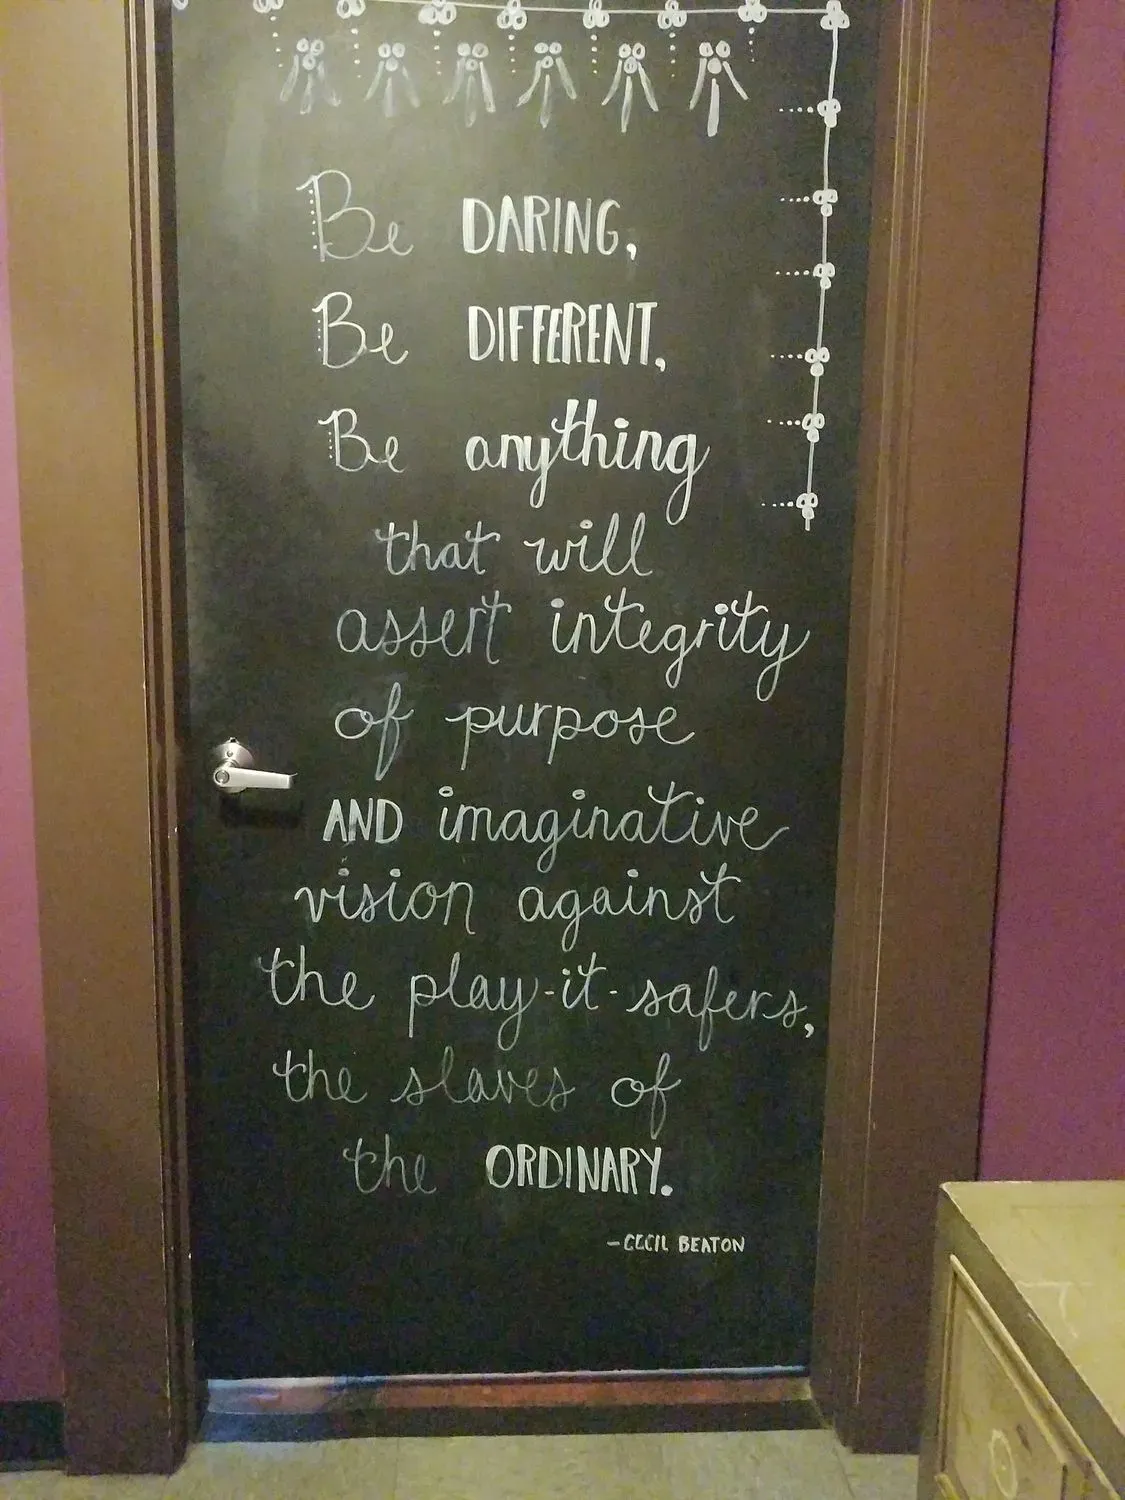 Be DARING,
Be DIFFERENT,
Be anything
that will
assert integrity
of purpose
AND imaginative
vision against
the play-it-safers,
the slaves of
the ORDINARY.
-CECIL BEATON